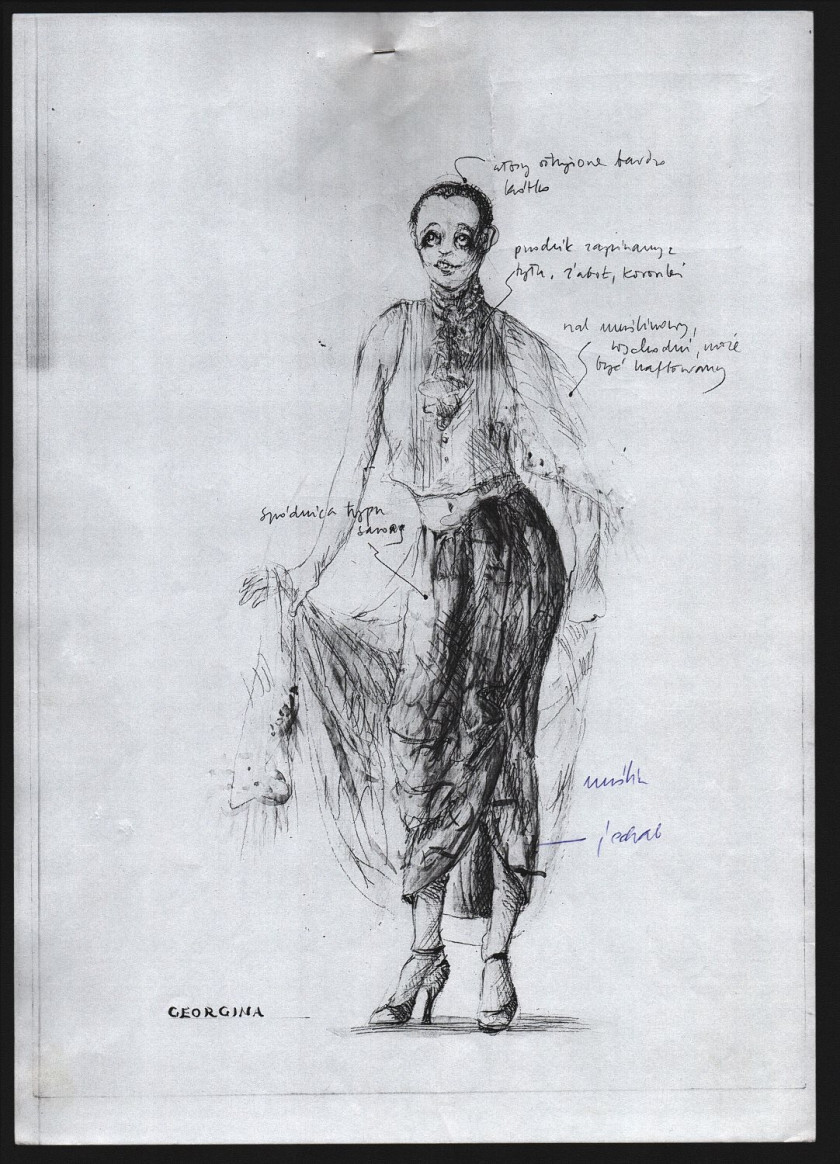 włosy strzyżone bardzo
krótko
przodzik zapinany z
tyłu, żabot, koronki
szal muślinowy,
wschodni, może
być haftowany
spódnica typu
sarong
muślin
jedwab
GEORGINA